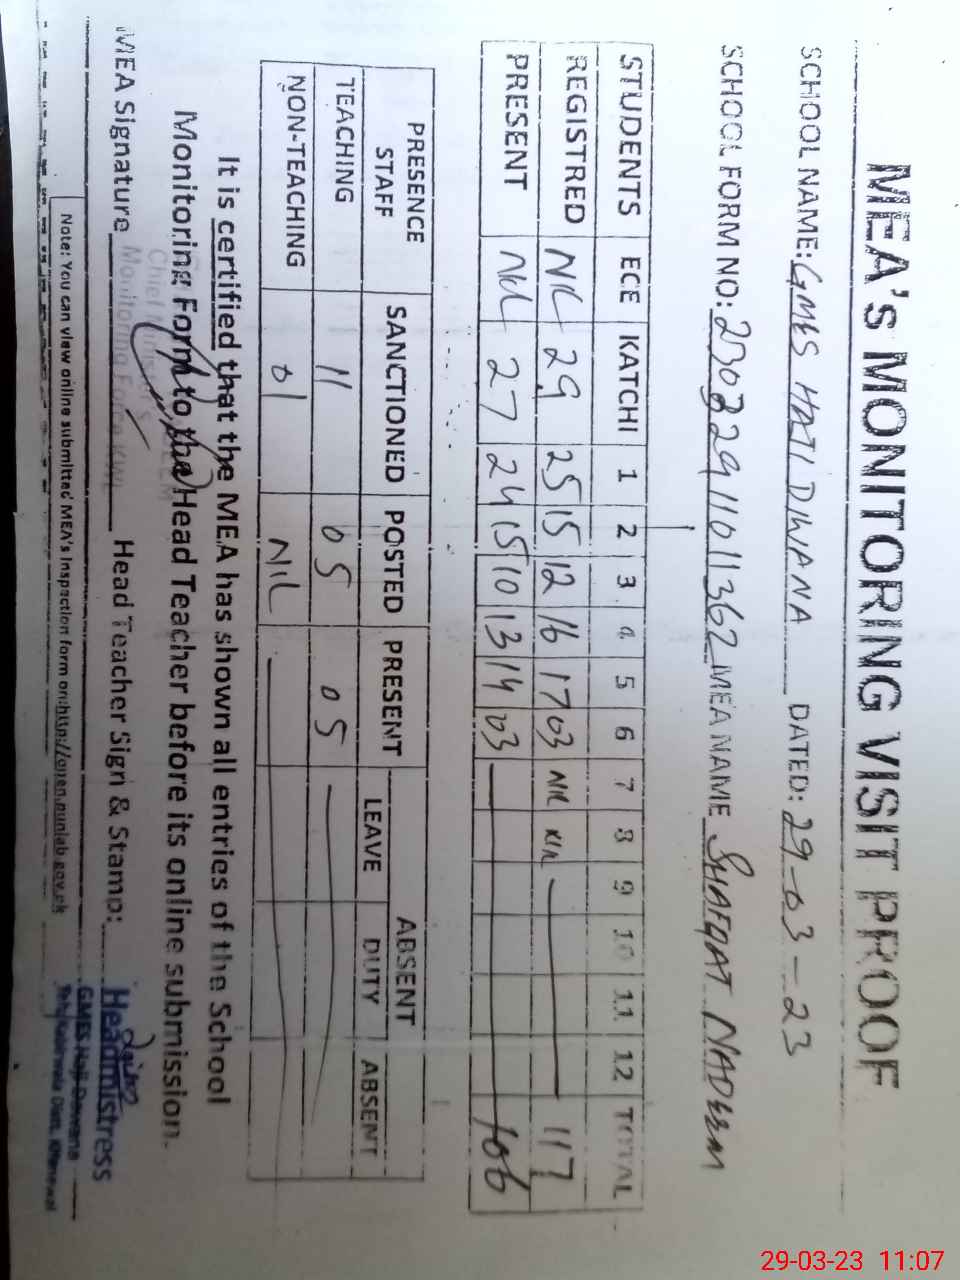 MEA's MONITORING VISIT PROOF
SCHOOL NAME: GMES HATI DIWANA DATED: 29-03-23
SCHOOL FORM NO: MEA NAME SHAFQAT NADEEM
STUDENTS ECE KATCHI 1 2 3 4 5 6 7 8 9 10 11 12 TOTAL
REGISTRED NIL 29 25 15 12 16 17 03 NIL NIL 117
PRESENT NIL 27 24 15 10 13 14 03 106
PRESENCE STAFF SANCTIONED POSTED PRESENT ABSENT
LEAVE DUTY ABSENT
TEACHING 11 05 05
NON-TEACHING 01 NIL
It is certified that the MEA has shown all entries of the School
Monitoring Form to the Head Teacher before its online submission.
Monitoring Force KWL
MEA Signature Head Teacher Sign & Stamp:
Headmistress
GMES Haji Dawana
Teh; Kabirwala Distt. Khanewal
Note: You can view online submitted MEA's Inspection form on:http://open.punjab.gov.pk
29-03-23 11:07